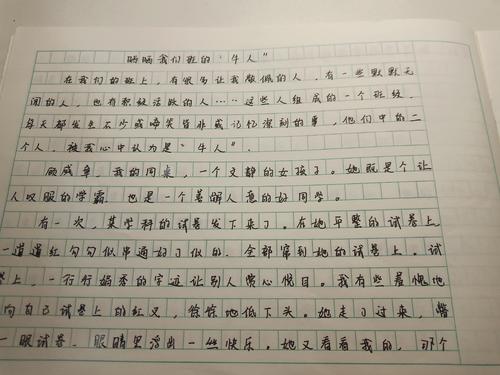 晒晒我们班的“牛人”
在我们的班上，有很多让我敬佩的人，有一些默默无
闻的人，也有积极活跃的人……这些人组成的一个班级，
每天都发生不少或啼笑皆非或记忆深刻的事，他们中的二
个人，被我心中认为是“牛人”．
顾咸争，我的同桌，一个文静的女孩子。她既是个让
人叹服的学霸，也是一个善解人意的好同学。
有一次，某学科的试卷发下来了。在她平整的试卷上，
一道道红勾勾似串通好了似的，全都窜到她的试卷上。试
卷上，一行行娟秀的字迹让别人赏心悦目。我有些羞愧地
向自己试卷上的红叉，惊惊地低下头。她走了过来，瞥
一眼试卷，眼睛里浮出一丝快乐。她又看看我的，那个